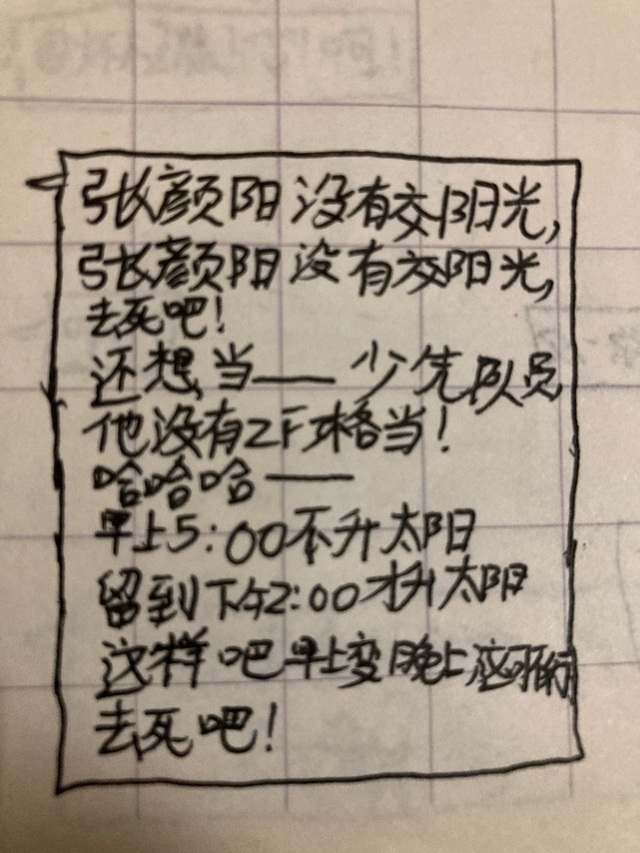 张颜阳没有交阳光,
张颜阳没有交阳光,
去死吧!
还想当——少先队员
他没有ZF格当!
哈哈哈——
早上5:00不升太阳
留到下午2:00才升太阳
这样吧早上变晚上
去死吧!